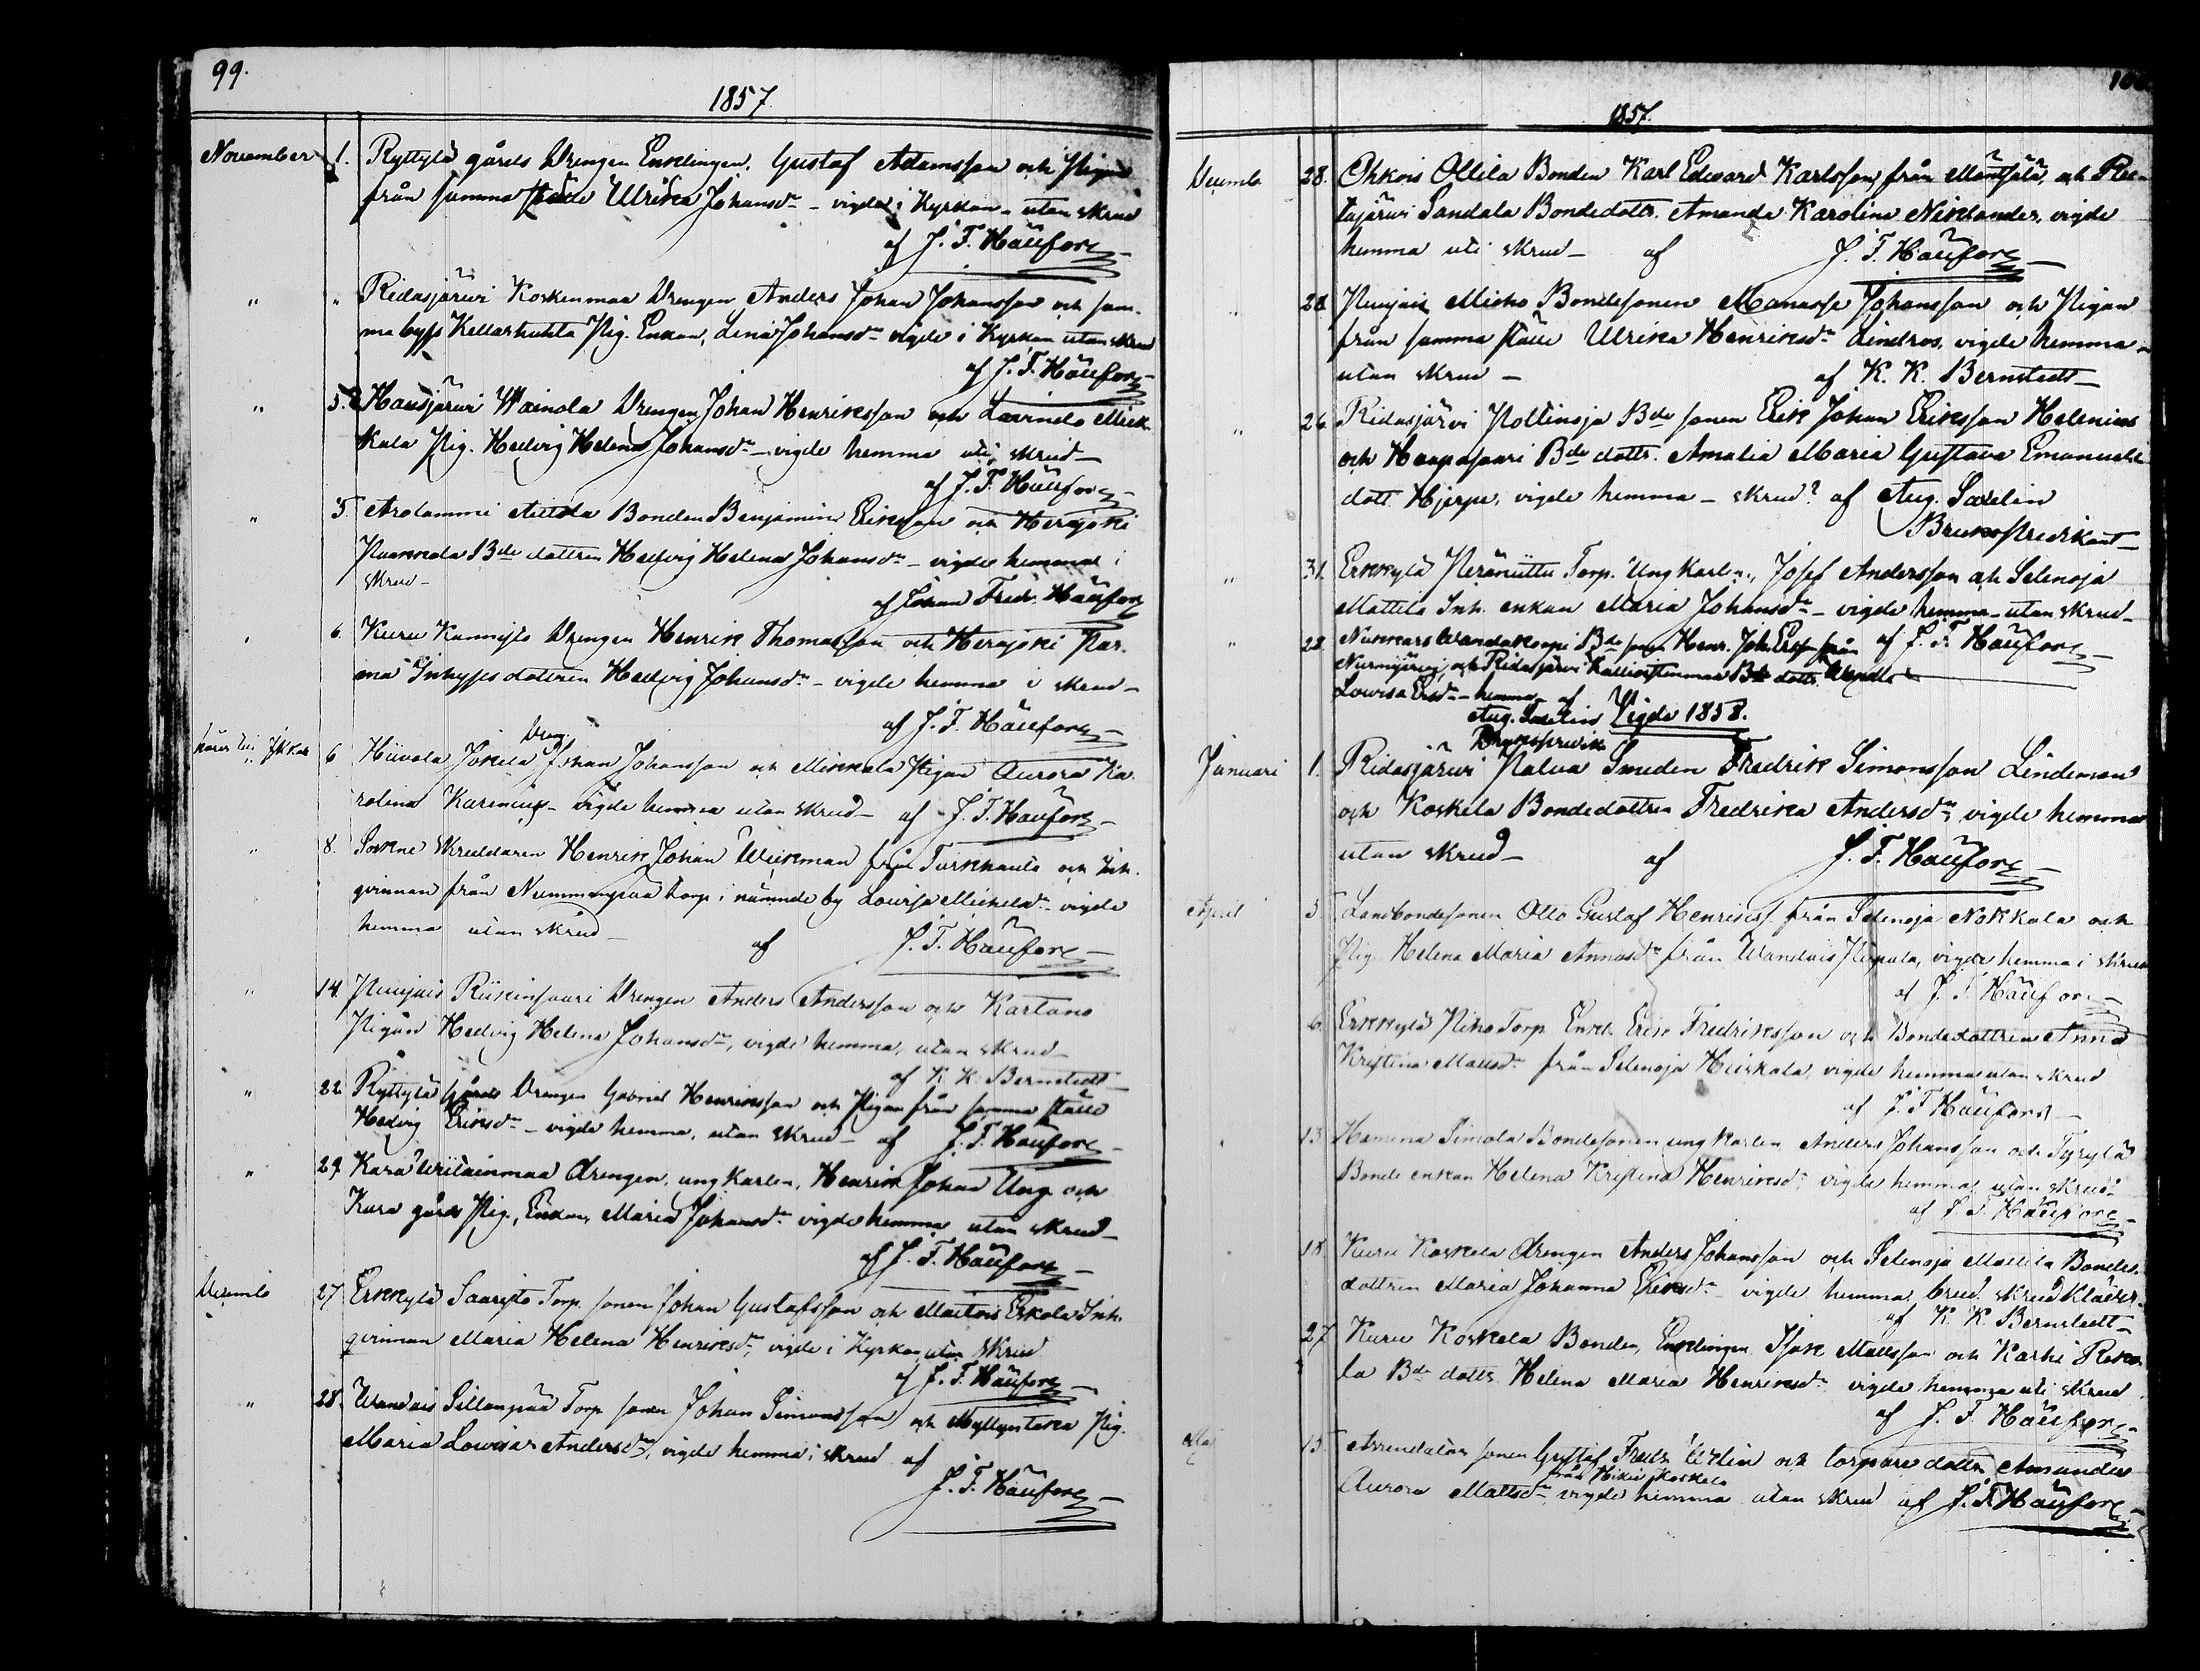 99.
1857.
November 1. Ryttylä gårds Drengen Enklingen, Gustaf Adamsson och Pigan
från samma ställe Ulrika Johansdr – vigda i Kyrkan – utan skrud
af J. F. Häüfors
" " Ridasjärvi Koskenmaa Drengen Anders Johan Johansson och sam-
ma byss Kellarhuhta Pig. Enkan, Lena Johansdr vigde i Kyrkan utan skrud
af J. F. Häüfors
" 5. Hausjärvi Wainola Drengen Johan Henriksson och Lavinto Mick-
kala Pig. Hedvig Helena Johansdr – vigde hemma uti skrud –
af J. F. Häüfors
" 5. Arolammi Anttila Bonden Benjamin Eriksson och Herajoki
Paavola Bde dottren Hedvig Helena Johansdr – vigde hemma i
skrud –
af Johan Fredr. Häüfors
" 6. Kuru Kannisto Drengen Henrik Thomasson och Herajoki Par-
ma Inhyses dottren Hedvig Johansdr – vigde hemma i skrud –
af J. F. Häüfors
6 Hiivola Jokela Johan Johansson och Mickala Pigan Aurora Ka-
Dreng.
rolina Karenius – vigde hemma utan skrud – af J. F. Häüfors
" 8. Sockne Skreddaren Henrik Johan Wickman från Turkhauta och Inh.
qvinnan från Nummenpää torp i nämnde by Lovisa Mickelsdr – vigde
hemma utan skrud – af J. F. Häüfors
" 14. Puujais Riikinsaari Drengen Anders Andersson och Kartano
Pigan Hedvig Helena Johansdr, vigde hemma, utan skrud –
af K. K. Bernstedt
" 22 Ryttylä gårds Drengen Gabriel Henriksson och Pigan från samma ställe
Hedvig Eriksdr – vigde hemma, utan skrud – af J. F. Häüfors
" 29. Kara drengen, ungkarlen, Henrik Johan Ung och
Kara gårds Pig., Enkan, Maria Johansdr vigde hemma utan skrud –
af J. F. Häüfors
27 Erkkylä Saaristo Torp. sonen Johan Gustafsson och Maitois Erkola Inh.
qvinnan Maria Helena Henriksdr, vigde i Kyrkan utan skrud
af J. F. Häüfors
" 28. Wandais Sillanpää Torp sonen Johan Simonsson och Myllyntaka Pig.
Maria Lovisa Andersdr, vigde hemma i skrud af
J. F. Häüfors
100
1857.
28. Ohkois Ollila Bonden Karl Edvard Karlsson, från Mäntsälä, och Ri-
tajärvi Sandala Bondedottr. Amanda Karolina Niklander, vigde
hemma uti skrud – af J. F. Häüfors
" 28. Puujais Micko Bondesonen Manasse Johansson och Pigan
från samma ställe Ulrika Henriksdr Lindros, vigde hemma –
utan skrud – af K. K. Bernstedt –
" 26. Ridasjärvi Poltinoja Bde sonen Erik Johan Eriksson Helenius
och Haapasaari Bde dottr. Amalia Maria Gustava Emanuels
dott Hjerpe, vigde hemma – skrud? af Aug. Saxelin
Brukspredikant –
" 31. Erkkylä Torp. Ungkarln., Josef Andersson och Selenoja
Mattila Inh. enkan Maria Johansdr – vigde hemma – utan skrud –
af J. F. Häüfors
" 28. Bde sonen Henr. Joh. Erss från
Nurmijärvi, och Ridasjärvi Kalliostenmaa Bde dottr. Wendla
Lovisa Ersdr – hemma – af
Aug. Saxelin
Brukspredik.
Vigde 1858.
Januari 1. Ridasjärvi Palva Smeden Fredrik Simonsson Lindeman
och Koskela Bondedottren Fredrika Andersdr, vigde hemma
utan skrud – af J. F. Häüfors
April 5 Landbondesonen Otto Gustaf Henrikss. från Selenoja Nokkala och
Pig. Helena Maria Annasdr från Wandais Piepala, vigde hemma i skrud
af J. F. Häüfors
6. Erkkylä Piha Torp. Enkl. Erik Fredriksson och Bondedottren Anna
Kristina Mattsdr från Selenoja Heiskala, vigde hemma utan skrud
af J. F. Häüfors
" 13. Hamina Simola Bondesonen ungkarlen Anders Johansson och Tyrylä
Bonde enkan Helena Kristina Henriksdr, vigde hemma utan skrud
af J. F. Häüfors
18. Kuru Koskela drengen Anders Johansson och Selenoja Mattila Bonde-
dottren Maria Johanna Eriksdr – vigde hemma, brud skrud kläder.
af K. K. Bernstedt
27 Kuru Koskela Bonden, Enklingen Isak Mattsson och Karhi Reko-
la Bde dottr. Helena Maria Henriksdr, vigde hemma uti skrud
af J. F. Häüfors
Maj 15. Arrendators sonen Gustaf Fredr. och torpare dottr. Amanda
från Hikiä Koskela
Aurora Mattsdr, vigde hemma utan skrud af J. F. Häüfors